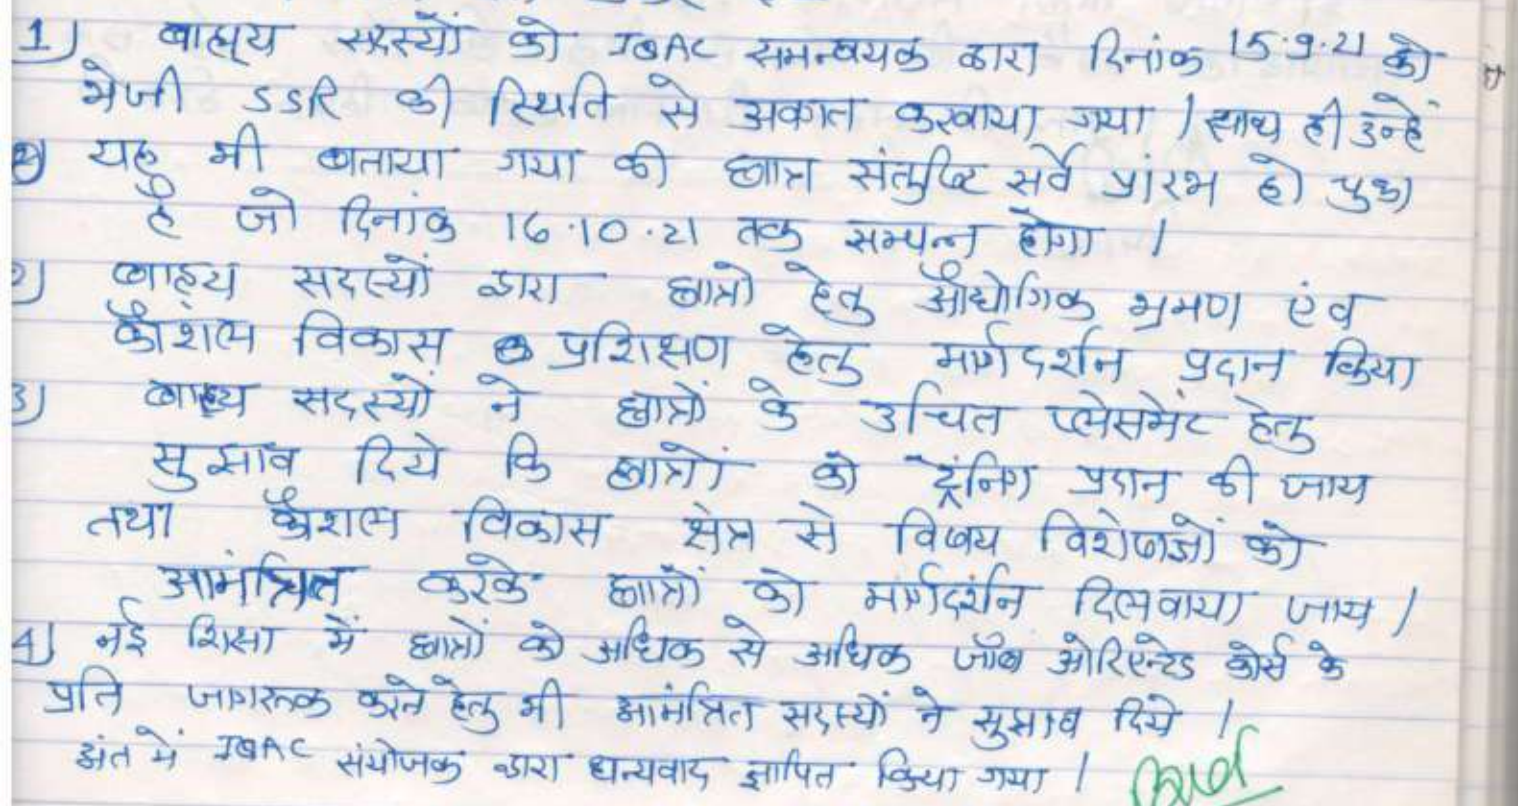 1) बाह्य सदस्यों को IQAC समन्वयक द्वारा दिनांक 15.9.21 को
भेजी SSR की स्थिति से अवगत करवाया गया । साथ ही उन्हें
यह भी बताया गया की छात्र संतुष्टि सर्वे प्रांरभ हो चुका
है जो दिनांक 16.10.21 तक सम्पन्न होगा ।
2) बाह्य सदस्यों द्वारा छात्रो हेतु औद्योगिक भ्रमण एंव
कौशल विकास प्रशिक्षण हेतु मार्गदर्शन प्रदान किया
3) बाह्य सदस्यों ने छात्रों के उचित प्लेसमेंट हेतु
सुझाव दिये कि छात्रों को ट्रेंनिग प्रदान की जाय
तथा कौशल विकास क्षेत्र से विषय विशेषज्ञों को
आमंत्रित करके छात्रों को मार्गदर्शन दिलवाया जाय ।
4) नई शिक्षा में छात्रों को अधिक से अधिक जॉब ओरिएन्टेड कोर्स के
प्रति जागरूक करने हेतु भी आमंत्रित सदस्यों ने सुझाव दिये ।
अंत में IQAC संयोजक द्वारा धन्यवाद ज्ञापित किया गया ।